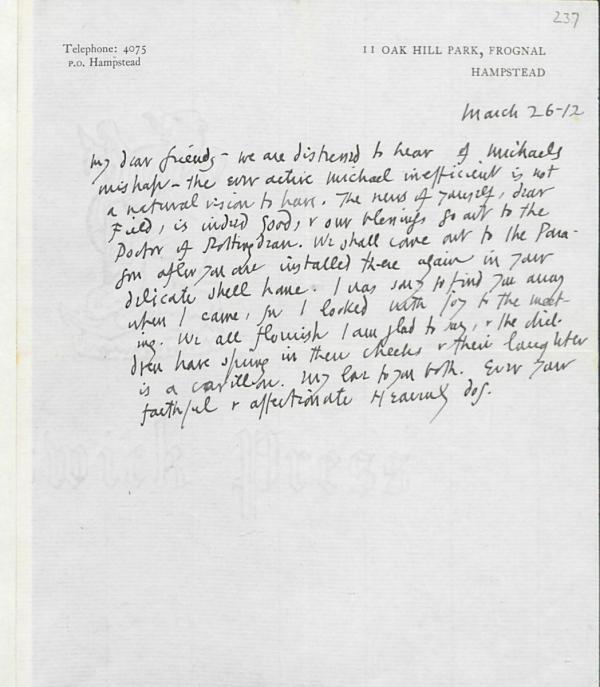 237
Telephone: 4075
P.O. Hampstead
11 OAK HILL PARK, FROGNAL
HAMPSTEAD
March 26-12
My dear friends - we are distressed to hear of Michaels
mishap - the ever active Michael inefficient is not
a natural vision to have. The news of yourself, dear
Field, is indeed good, & our blessings go out to the
Doctor of Rottingdean. We shall come out to the Para-
gon after you are installed there again in your
delicate shell home. I was sorry to find you away
when I came, for I looked with joy to the meet-
ing. We all flourish I am glad to say, & the chil-
dren have spring in their cheeks & their laughter
is a carillon. My love to you both. Ever your
faithful & affectionate Heavenly dog.
wick Press